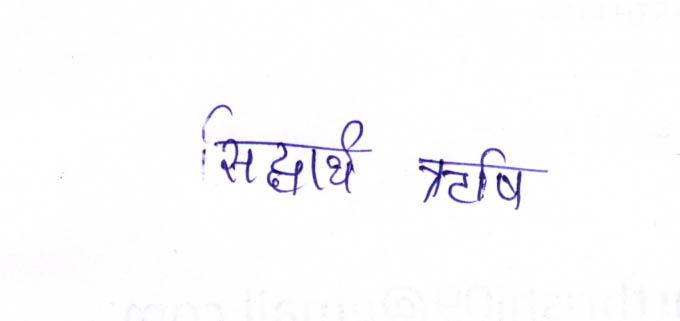 सिद्धार्थ ऋषि